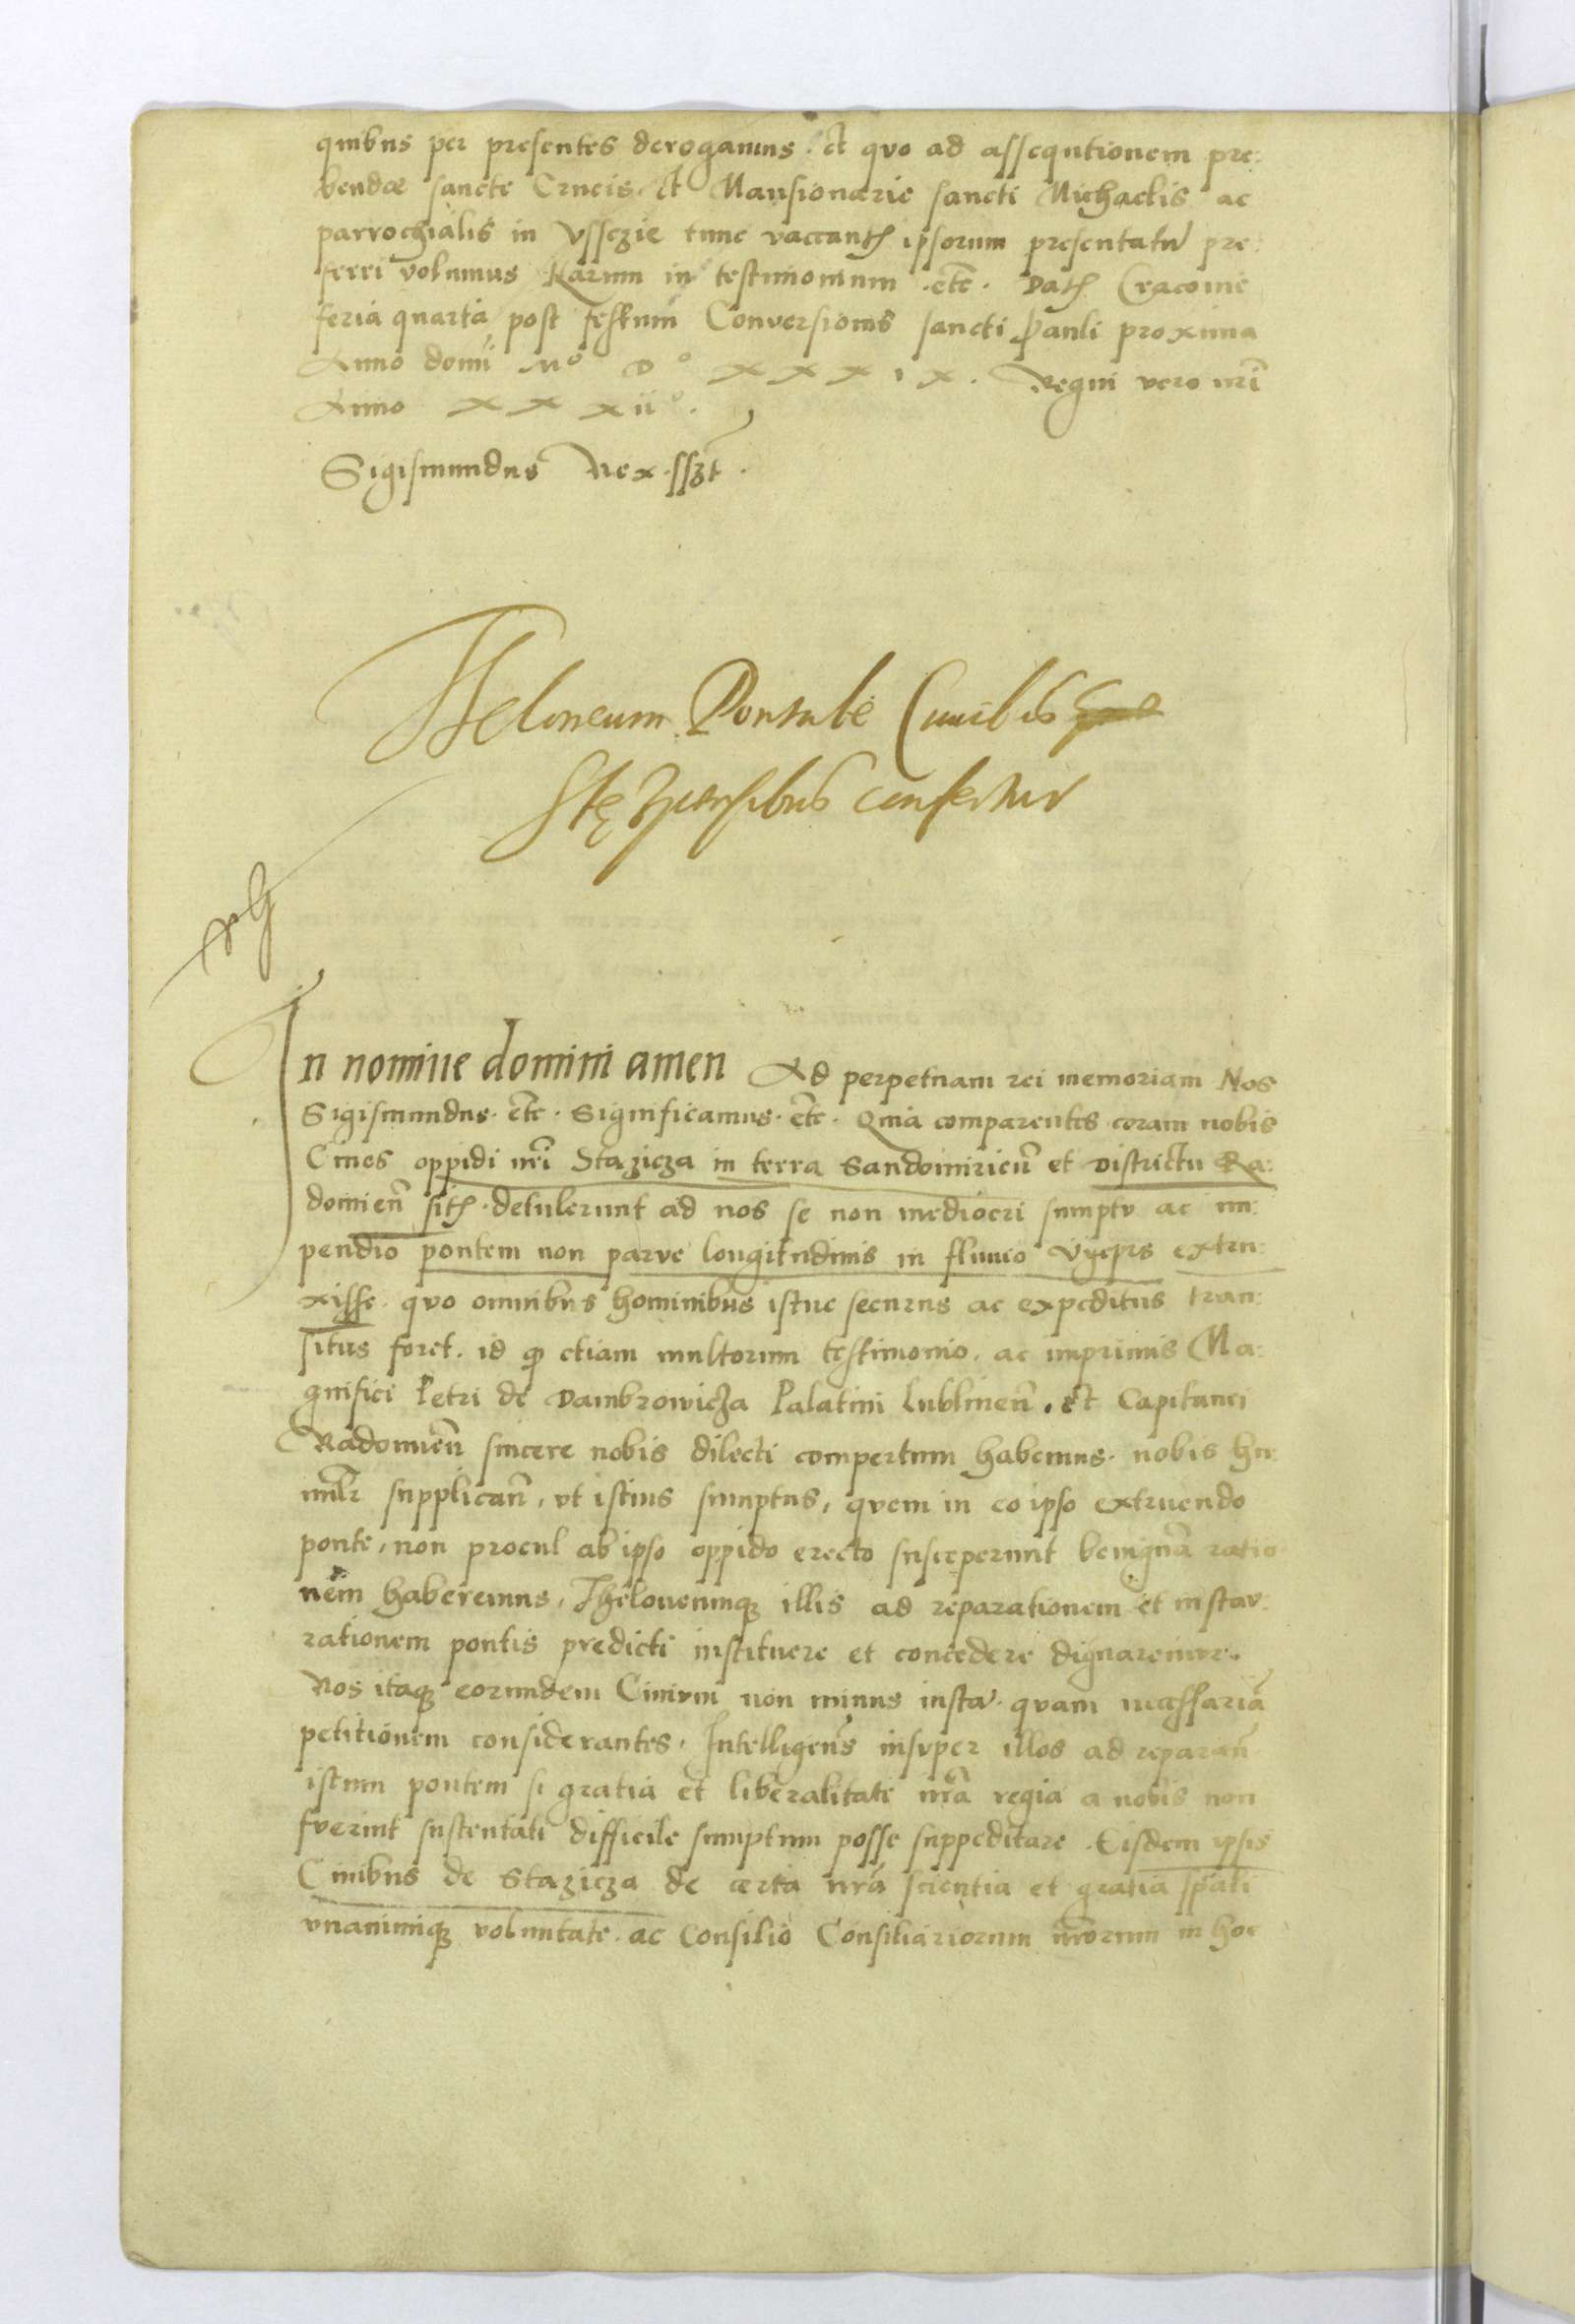 quibus per presentes derogamus. et quo ad assequtionem pre:
bendæ sancte Crucis. et Mansionarie sancti Michaelis ac
parrochialis in Vssczie tunc vaccantꝭ ipsorum presentatū pre:
ferri volumus Harum in testimonium .etc̄. Datꝭ Cracovie
feria quarta post festum Conversionis sancti Pauli proxima
Anno domī Mº Dº XXXIX. Regni vero nr̄i
Anno XXXIIº.
Sigismundus Rex sszt.
Teloneum Pontale Civibus
Stęzicensibus confertur
In nomine domini amen Ad perpetuam rei memoriam Nos
Sigismundus. etc̄. Significamus. etc̄. Quia comparentes coram nobis
Cives oppidi nr̄i Stazicza in terra Sandomirieñ et Districtu Ra:
domieñ sitꝭ. detulerunt ad nos se non mediocri sumptu ac im:
pendio pontem non parve longitudinis in fluvio Vyeprs extru:
xisse. quo omnibus hominibus istuc securus ac expeditus tran:
situs foret. id qꝫ etiam multorum testimonio. ac imprimis Ma:
gnifici Petri de Dambrowicza Palatini Lublineñ. et Capitanei
Radomieñ sincere nobis dilecti compertum habemus. nobis hu:
mlr̄ supplicañ, ut istius sumptus, quem in eo ipso extruendo
ponte, non procul ab ipso oppido erecto susceperunt benignā ratio
nem haberemus, Theloneumqꝫ illis ad reparationem et instau:
rationem pontis predicti instituere et concedere dignaremur.
Nos itaqꝫ eorundem Civium non minus iustā quam necessariā
petitionem considerantes, Intelligens̄ insuper illos ad reparañ
istum pontem si gratia et liberalitate nr̄a regia a nobis non
fuerint sustentati difficile sumptum posse suppeditare. Eisdem ipsis
Civibus de Stazicza de certa nr̄a scientia et gratia spāli
unanimiqꝫ voluntate. ac Consilio Consiliariorum nr̄orum in hoc